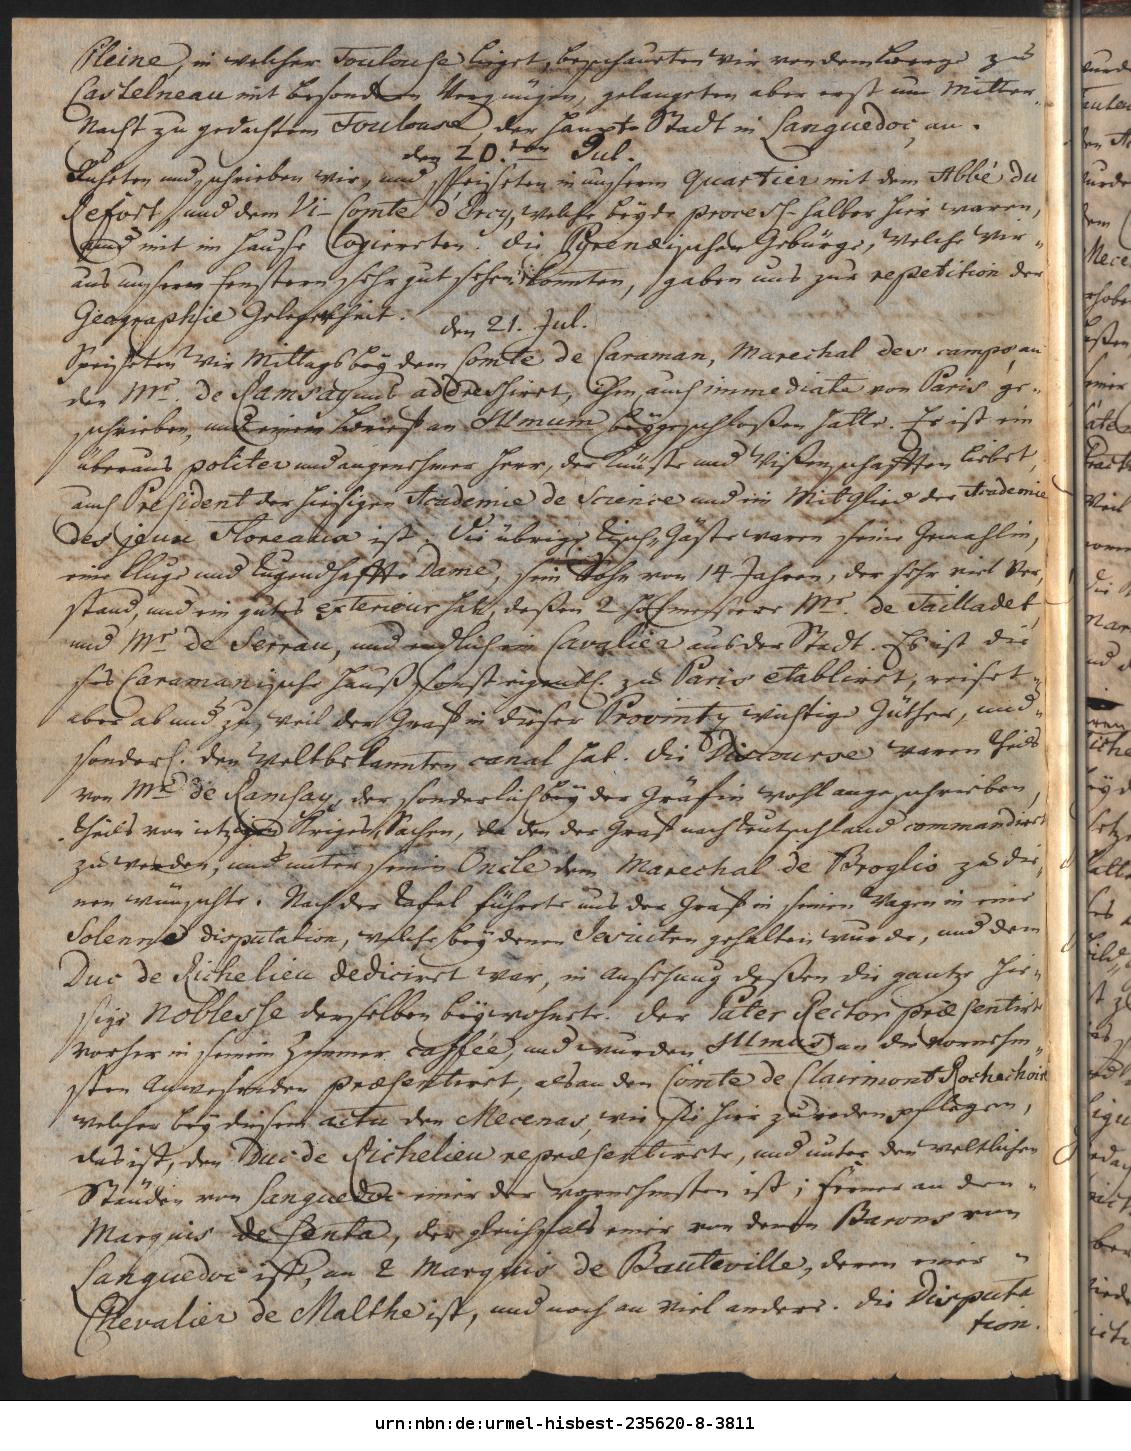 Pleine, in welcher Toulouse lieget, beschaueten wir von dem Berge zu
Castelneau mit besondern Vergnügen, gelangeten aber erst um Mitter-
Nacht zu gedachtem Toulouse, der Haupt-Stadt in Languedoc, an.
den 20.ten Jul.
Ruheten und schrieben wir, und speiseten in unserm Quartier mit dem Abbé du
Refort, und dem Vi-Comte d'Orcy, welche beyde process-halber hier waren,
und mit im Hause logiereten. Die Pyrenæischen Gebürge, welche wir
aus unsern Fenstern sehr gut sehen konnten, gaben uns zur repetition der
Geographie Gelegenheit.
den 21. Jul.
Speiseten wir Mittags bey dem Comte de Caraman, Marechal des camps, an
den Mr. de Ramsay uns addressiret, ihm auch immediate von Paris ge-
schrieben, und einen Brief an Illmum beygeschloßen hatte. Er ist ein
überaus politer und angenehmer Herr, der Künste und Wißenschafften liebet,
auch President der hiesigen Academie de Science und ein Mitglied der Academie
des jeux Floreaux ist. Die übrige Tisch-Gäste waren seine Gemahlin,
eine kluge und tugendhaffte Dame, sein Sohn von 14 Jahren, der sehr viel Ver-
stand, und ein gutes exterieur hat, deßen 2 Hofmeistere Mr. de Tailladet,
und Mr de Serrau, und endlich ein Cavalier aus der Stadt. Es ist die-
ses Caramanische Hauß sonst eigentl. zu Paris etabliret, reiset
aber ab und zu, weil der Graf in dieser Provintz wichtige Güther, und
sonderl. den weltbekannten canal hat. Die Discourse waren theils
von Mr. de Ramsay, der sonderlich bey der Gräfin wohl angeschrieben,
theils von ietzigen Kriges-Sachen, da den der Graf nach Teutschland commandiret
zu werden, und unter seinen Oncle dem Marechal de Broglio zu die-
nen wünschte. Nach der Tafel führete uns der Graf in seinen Wagen in eine
Solenne disputation, welche bey denen Jesuiten gehalten wurde, und dem
Duc de Richelieu dediciret war, in Ansehung deßen die gantze hie-
sige Noblesse derselben beywohnete. Der Pater Rector præsentirte
vorher in seinem Zimmer caffée, und wurden Illmus an die vornehm-
sten Anwesenden præsentiret, als an den Comte de Clairmont Rochechoir
welcher bey diesem actu den Mecenas, wie sie hier zu reden pflegen,
das ist, den Duc de Richelieu repræsentirete, und unter den weltlichen
Ständen von Languedoc einer der vornehmsten ist; ferner an den
Marquis de Senta, der gleichfals einer von denen Barons von
Languedoc ist, an 2 Marquis de Bauteville, deren einer
Chevalier de Malthe ist, und noch an viel andere. Die Disputa-
tion.
urn:nbn:de:urmel-hisbest-235620-8-3811